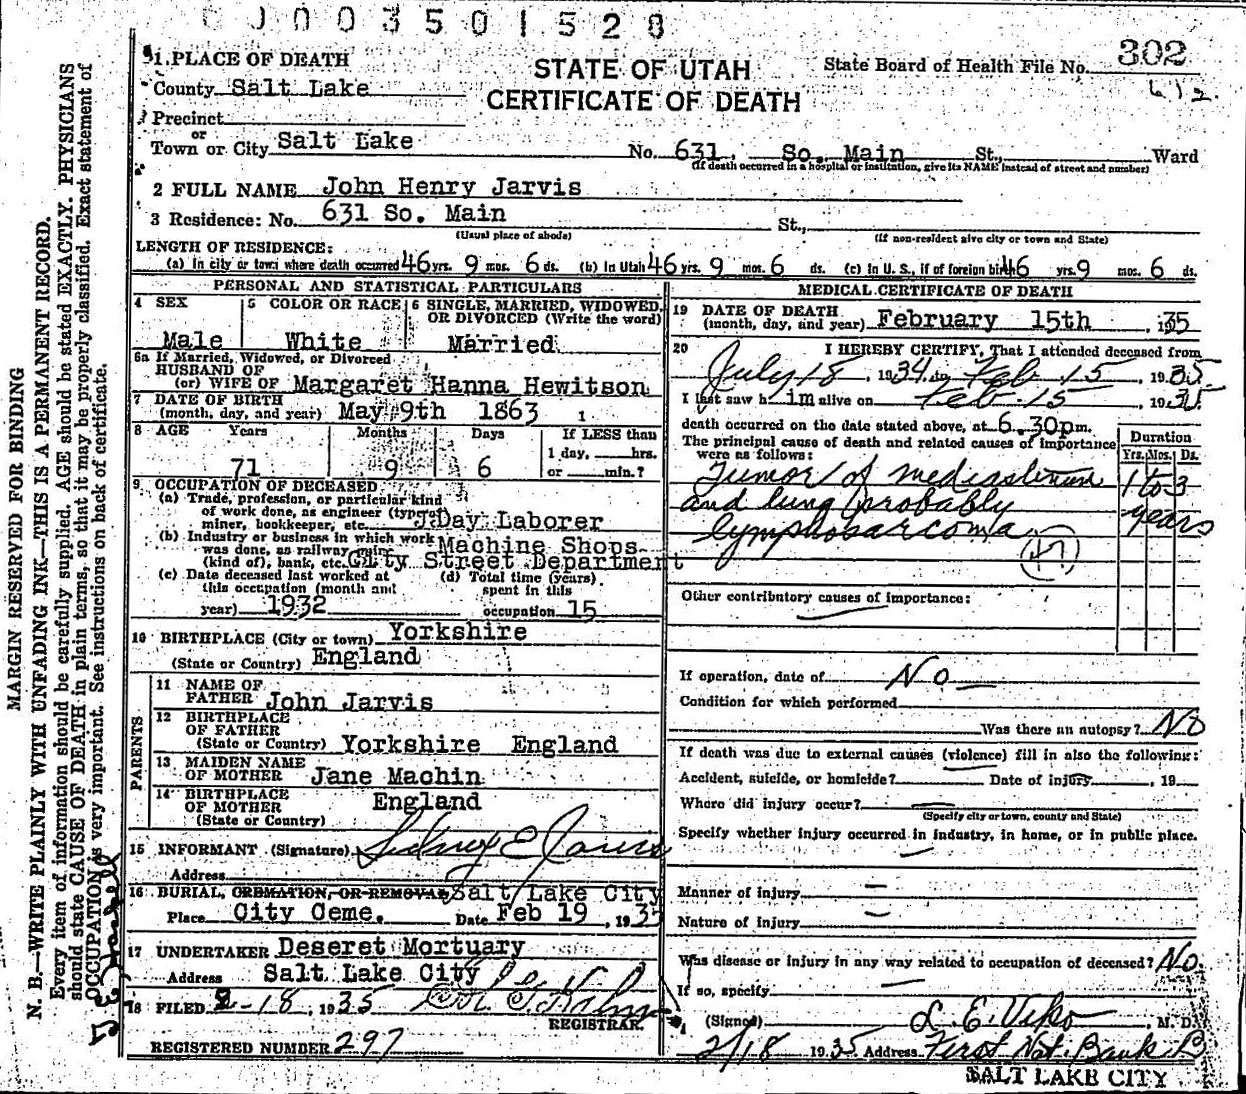 0003501528
302
612.
STATE OF UTAH
CERTIFICATE OF DEATH
State Board of Health File No.
MARGIN RESERVED FOR BINDING
N. B.—WRITE PLAINLY WITH UNFADING INK—THIS IS A PERMANENT RECORD.
Every item of information should be carefully supplied. AGE should be stated EXACTLY. PHYSICIANS
should state CAUSE OF DEATH in plain terms, so that it may be properly classified. Exact statement of
OCCUPATION is very important. See instructions on back of certificate.
1. PLACE OF DEATH
County Salt Lake
Precinct
or
Town or City Salt Lake No. 631, So. Main St., Ward
(If death occurred in a hospital or institution, give its NAME instead of street and number)
2 FULL NAME John Henry Jarvis
3 Residence: No. 631 So. Main St.,
(Usual place of abode) (If non-resident give city or town and State)
LENGTH OF RESIDENCE:
(a) In city or town where death occurred 46 yrs. 9 mos. 6 ds. (b) In Utah 46 yrs. 9 mos. 6 ds. (c) In U. S., if of foreign birth 46 yrs. 9 mos. 6 ds.
PERSONAL AND STATISTICAL PARTICULARS
4 SEX
Male
5 COLOR OR RACE
White
6 SINGLE, MARRIED, WIDOWED,
OR DIVORCED (Write the word)
Married
6a If Married, Widowed, or Divorced
HUSBAND OF
(or) WIFE OF Margaret Hanna Hewitson
7 DATE OF BIRTH
(month, day, and year) May 9th 1863
8 AGE Years Months Days If LESS than
1 day, hrs.
71 9 6 or min.?
9 OCCUPATION OF DECEASED
(a) Trade, profession, or particular kind
of work done, as engineer (type of)
miner, bookkeeper, etc. Day Laborer
(b) Industry or business in which work Machine Shops
was done, as railway, mine
(kind of), bank, etc. City Street Department
(c) Date deceased last worked at
this occupation (month and
year) 1932
(d) Total time (years)
spent in this
occupation 15
10 BIRTHPLACE (City or town) Yorkshire
(State or Country) England
PARENTS
11 NAME OF
FATHER John Jarvis
12 BIRTHPLACE
OF FATHER
(State or Country) Yorkshire England
13 MAIDEN NAME
OF MOTHER Jane Machin
14 BIRTHPLACE
OF MOTHER England
(State or Country)
15 INFORMANT (Signature) Sidney E Jarvis
Address
16 BURIAL, CREMATION, OR REMOVAL Salt Lake City
Place City Ceme. Date Feb 19, 1935
17 UNDERTAKER Deseret Mortuary
Address Salt Lake City
18 FILED 2-18, 1935
REGISTRAR.
REGISTERED NUMBER 297
MEDICAL CERTIFICATE OF DEATH
19 DATE OF DEATH
(month, day, and year) February 15th, 1935
20 I HEREBY CERTIFY, That I attended deceased from
July 18, 1934, to Feb 15, 1935.
I last saw him alive on Feb-15, 1935.
death occurred on the date stated above, at 6.30pm.
The principal cause of death and related causes of importance
were as follows:
Duration
Yrs. Mos. Ds.
Tumor of mediastinum 1 to 3
and lung (probably years
lymphosarcoma
(47)
Other contributory causes of importance:
If operation, date of No
Condition for which performed
Was there an autopsy? No
If death was due to external causes (violence) fill in also the following:
Accident, suicide, or homicide? Date of injury, 19
Where did injury occur?
(Specify city or town, county and State)
Specify whether injury occurred in industry, in home, or in public place.
Manner of injury
Nature of injury
Was disease or injury in any way related to occupation of deceased? No.
If so, specify
(Signed) L. E. Viko, M. D.
2/18 1935 Address First Nat. Bank B
SALT LAKE CITY